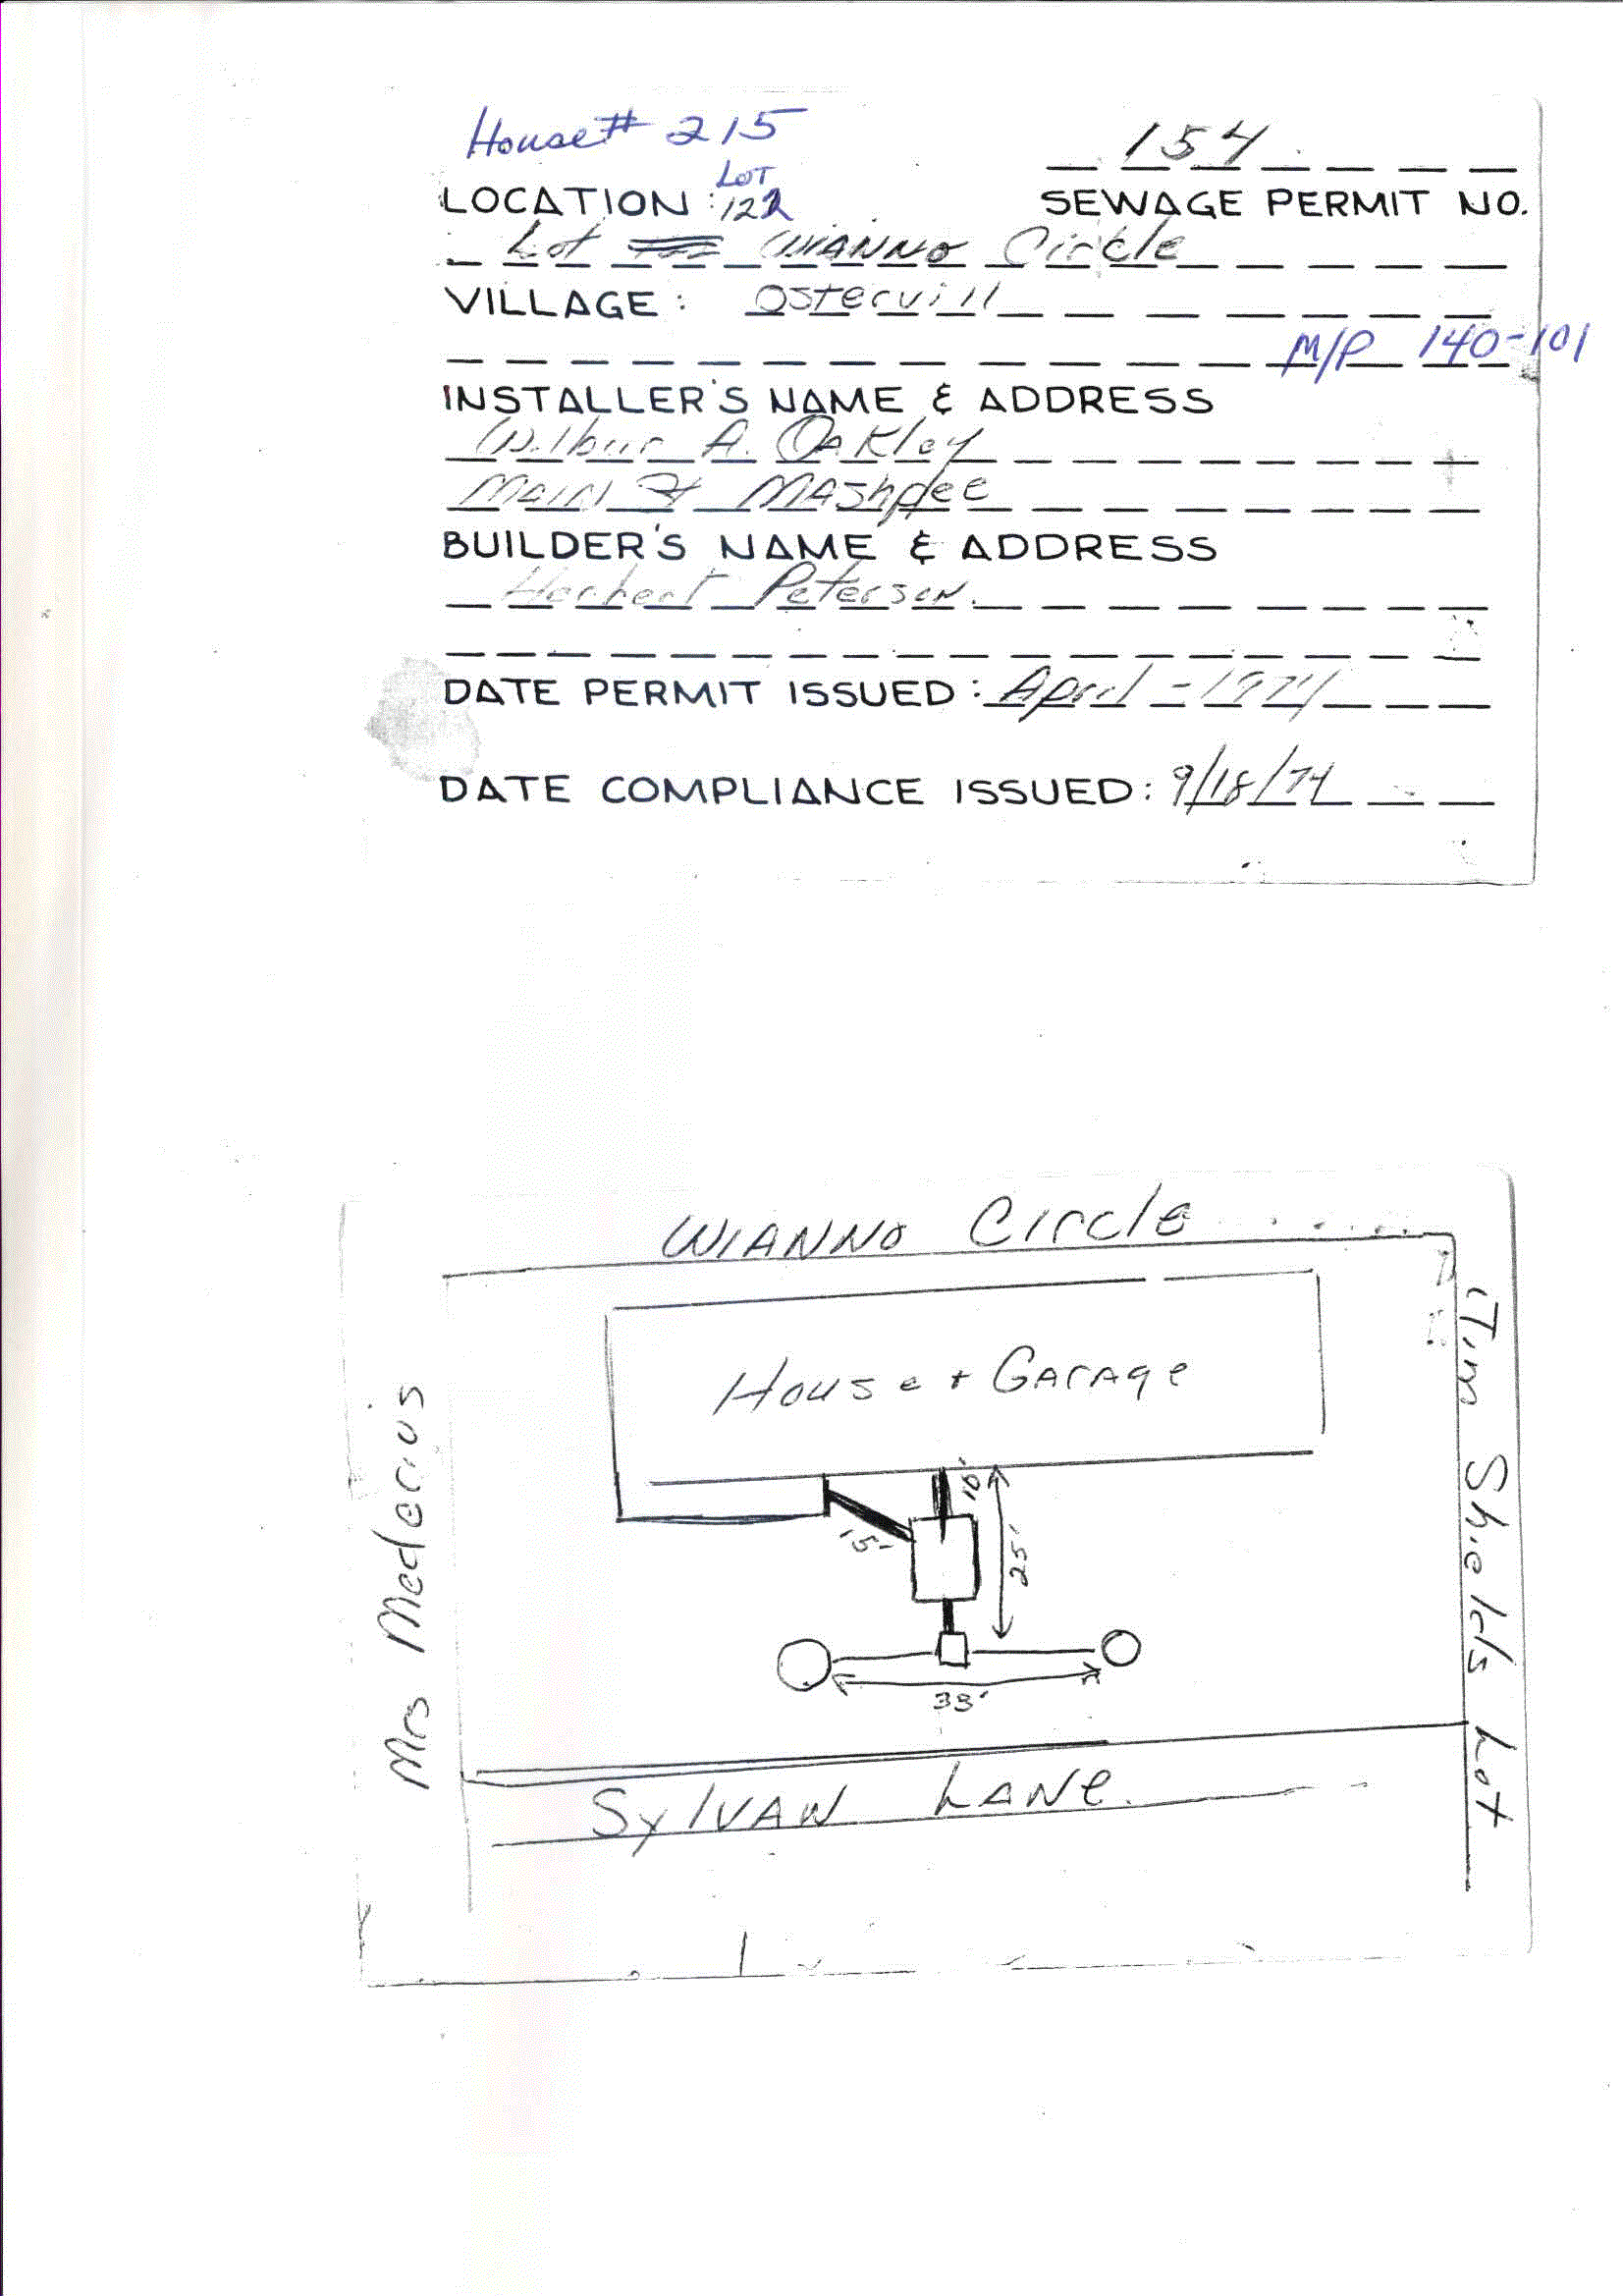 House# 215
154
LOT
LOCATION: 122
SEWAGE PERMIT NO.
Lot WIANNO Circle
VILLAGE: Ostervill
M/P 140-101
INSTALLER'S NAME & ADDRESS
Wilbur A. Oakley
MAIN St MASHpee
BUILDER'S NAME & ADDRESS
Herbert Peterson.
DATE PERMIT ISSUED: April - 1974
DATE COMPLIANCE ISSUED: 9/18/74
WIANNO Circle
House + GArAge
Mrs Mederius
Tim Shields Lot
10'
15'
25'
33'
SylVAN LANe.